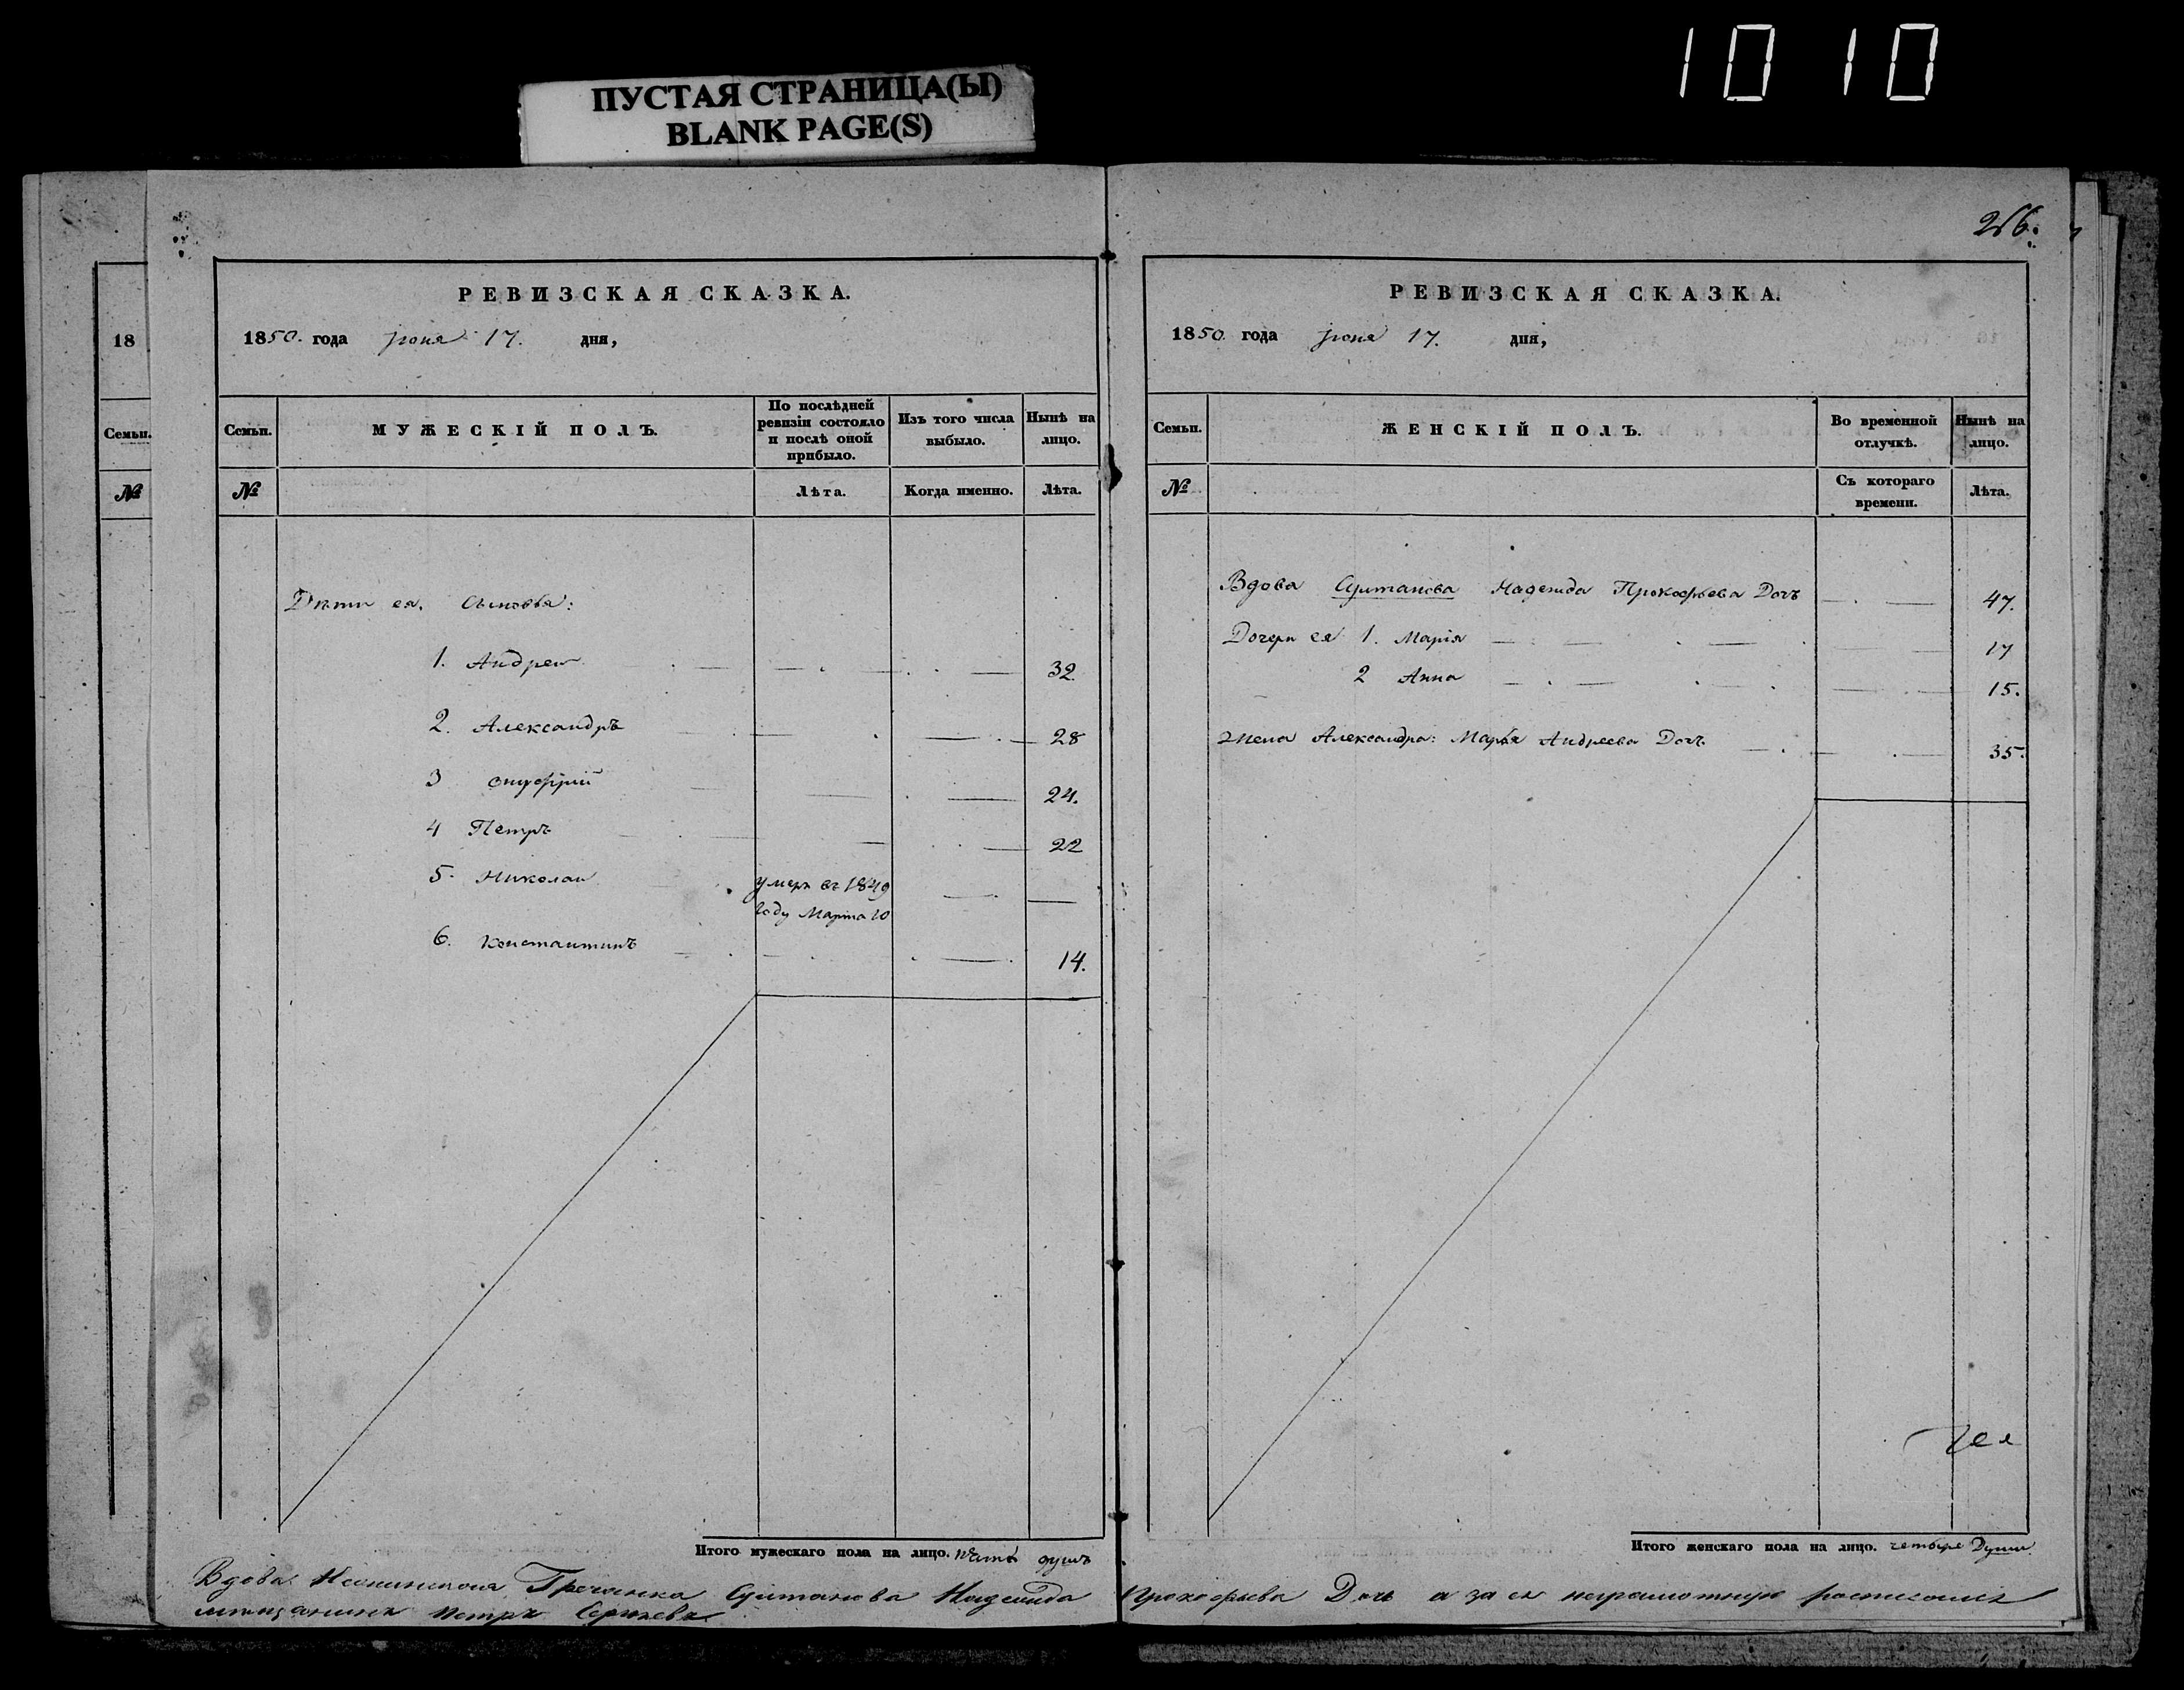 1010
ПУСТАЯ СТРАНИЦА(Ы)
BLANK PAGE(S)
18
Семьи.
№
РЕВИЗСКАЯ СКАЗКА.
1850. года Іюня 17. дня,
Семьи.
МУЖЕСКІЙ ПОЛЪ.
По послѣдней ревизіи состояло и послѣ оной прибыло.
Изъ того числа выбыло.
Нынѣ на лицо.
№
Лѣта.
Когда именно.
Лѣта.
Дѣти ея. Сыновья:
1. Андрей 32.
2. Александръ 28
3 Онуфрій 24.
4 Петръ 22
5. Николай умеръ въ 1849
году Марта 10
6. Константинъ 14.
Итого мужескаго пола на лицо. пять душъ
266.
РЕВИЗСКАЯ СКАЗКА.
1850. года Іюня 17. дня,
Семьи.
ЖЕНСКІЙ ПОЛЪ.
Во временной отлучкѣ.
Нынѣ на лицо.
№
Съ котораго времени.
Лѣта.
Вдова Султанова Надежда Прокофьева Дочь 47.
Дочери ея 1. Марія 17
2 Анна 15.
жена Александра: Марья Андреева Дочь 35.
Итого женскаго пола на лицо. четыре Души.
Вдова Гречанка Султанова Надежда Прокофьева Дочь а за ея неграмотную росписался
мещанинъ Петръ